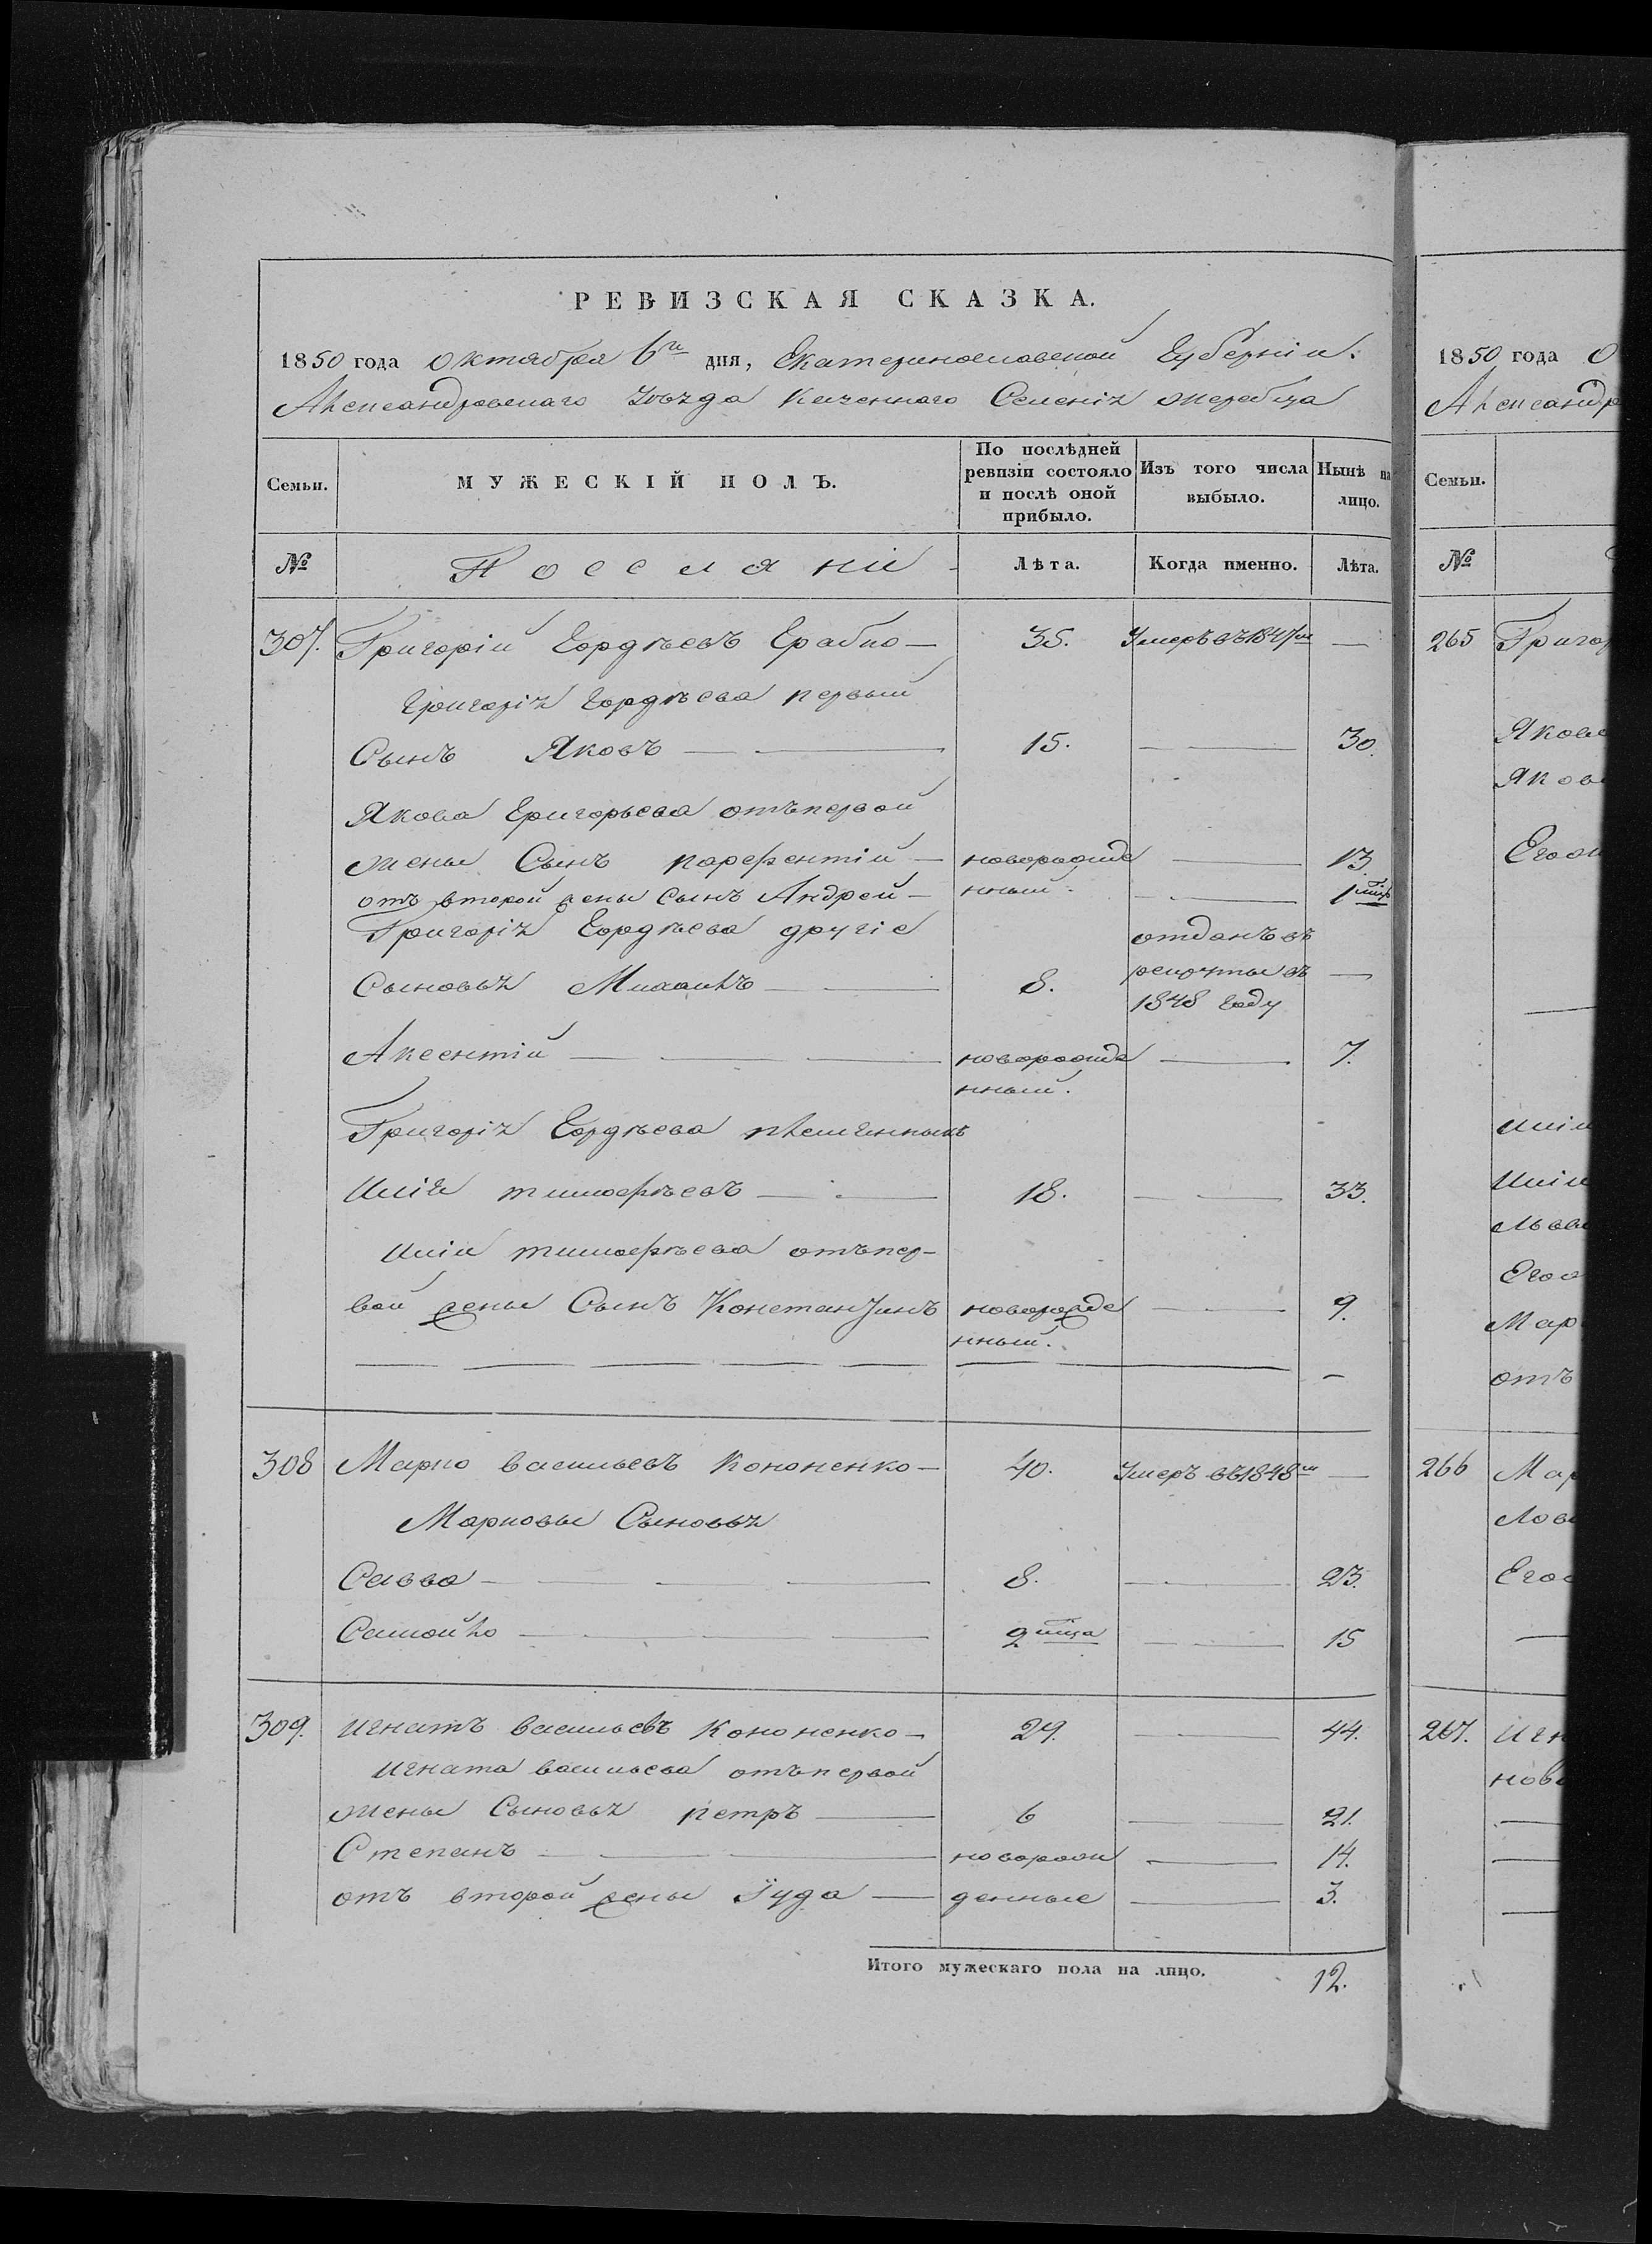 РЕВИЗСКАЯ СКАЗКА.
1850 года октября 6го дня, Екатеринославской Губерніи.
Александровскаго уѣзда казеннаго Селенія жеребца
Семьи. МУЖЕСКІЙ ПОЛЪ. По послѣдней ревизіи состояло и послѣ оной прибыло. Изъ того числа выбыло. Нынѣ на лицо.
№ Поселяни Лѣта. Когда именно. Лѣта.
307. Григорій Гордѣевъ Грабко — 35. Умеръ въ 1847м —
Григорія Гордѣева первый
Сынъ Яковъ — 15. — 30.
Якова Григорьева отъ первой
жены Сынъ парфентій — новорожде — 13.
отъ второй жены Сынъ Андрей — нный. — 1
Григорія Гордѣева другіе отданъ въ
Сыновья Михаилъ — 8. рекруты въ —
1848 Году
Аксентій — новорожде — 7.
нный.
Григорія Гордѣева племянникъ
Илія тимофѣевъ — 18. — 33.
Иліи тимофѣева отъ пер-
вой жены Сынъ Константинъ новорожде — 9.
нный.
308 Марко васильевъ Кононенко — 40. Умеръ въ 1848м —
Марковы Сыновья
Савва — 8. — 23.
Самойло — 2 мца — 15
309. Игнатъ васильевъ Кононенко — 29. — 44.
Игната васильева отъ первой
жены Сыновья петръ — 6 — 21.
Степанъ — новорож — 14.
отъ второй жены Іуда — денные — 3.
Итого мужескаго пола на лицо. 12.
1850 года О
Александро
Семьи.
№
265 Григор
Яков
Яков
Его
Иліи
Иліи
Его
Мар
отъ
266 Мар
Его
267. Игн
ново